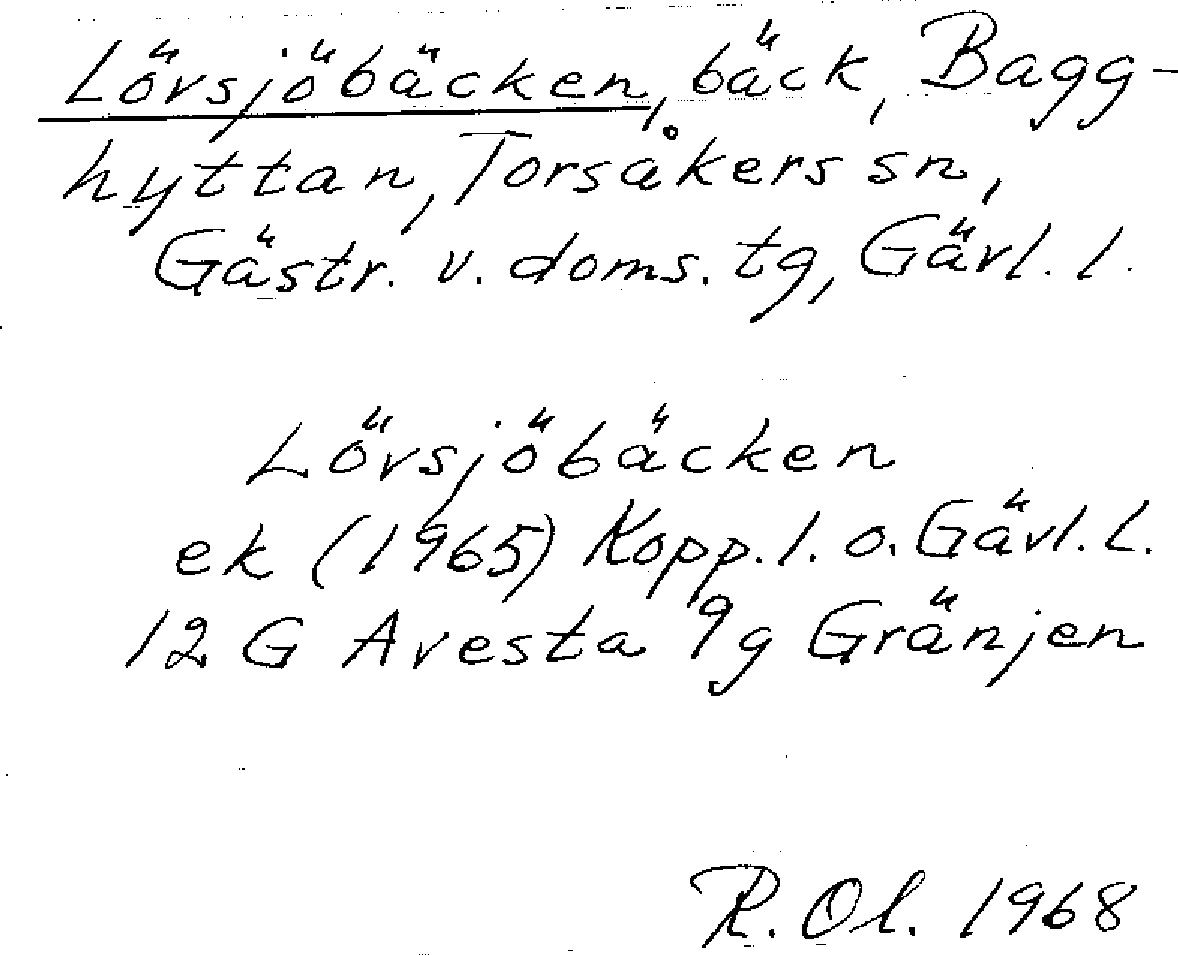 Lövsjöbäcken, bäck, Bagg-
hyttan, Torsåkers sn,
Gästr. v. doms. tg, Gävl. l.
Lövsjöbäcken
ek (1965) Kopp. l. o. Gävl. l.
12 G Avesta 9g Gränjen
R. Ol. 1968